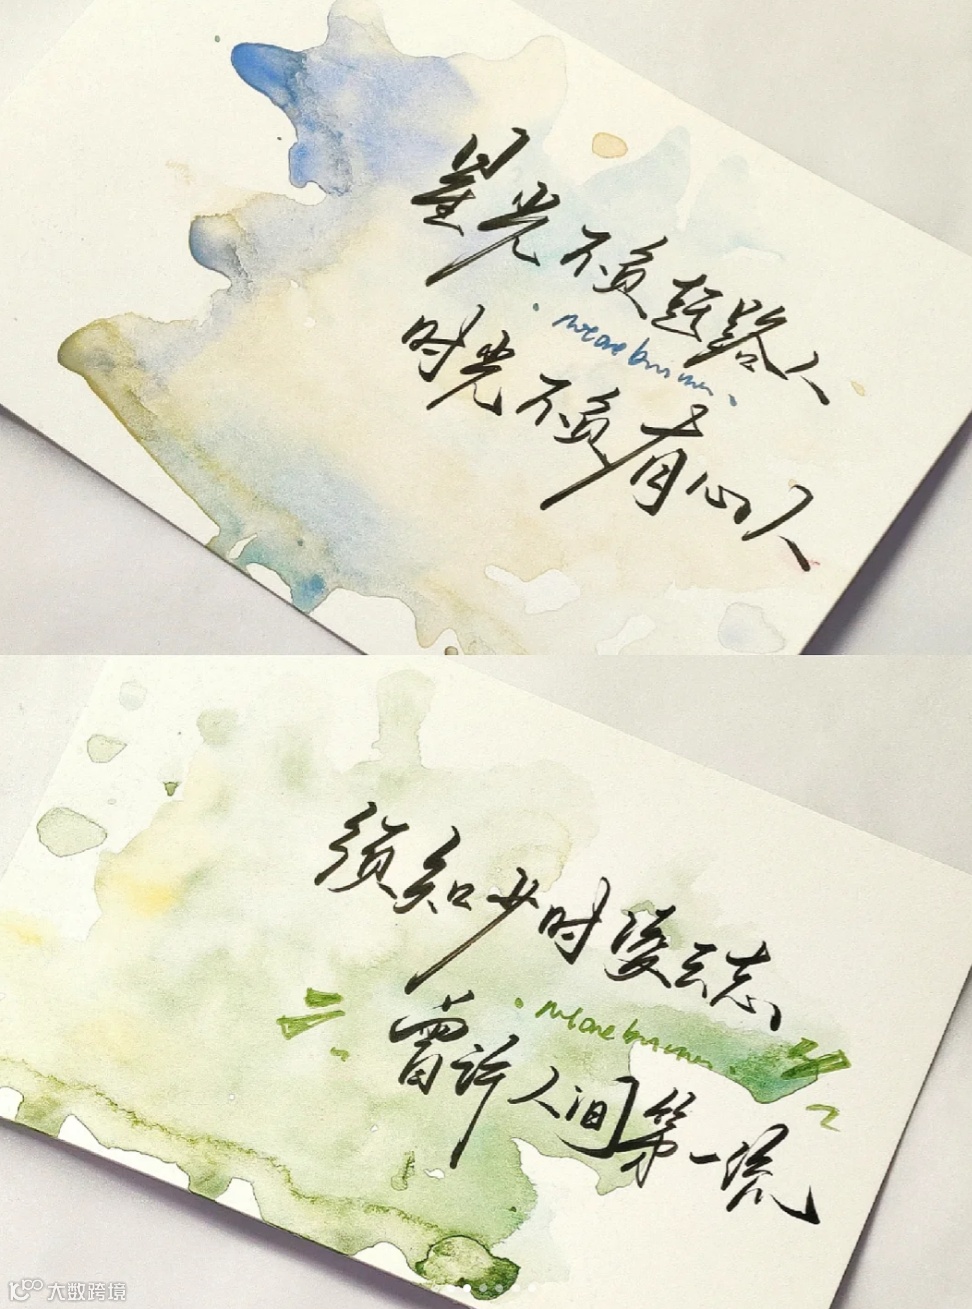 星光不负赶路人
时光不负有心人
须知少时凌云志
曾许人间第一流
大数跨境